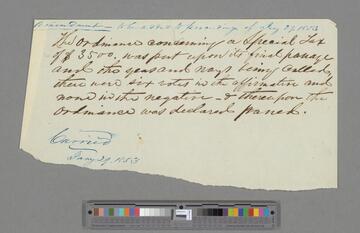 to be added to proceedings of Jany 29, 1853
The Ordinance concerning a Special Tax
of $3500. was put upon its final passage
and the yeas and nays being called,
there were six votes in the affirmative and
none in the negative - & thereupon the
Ordinance was declared passed.
Carried
Jany 29, 1853